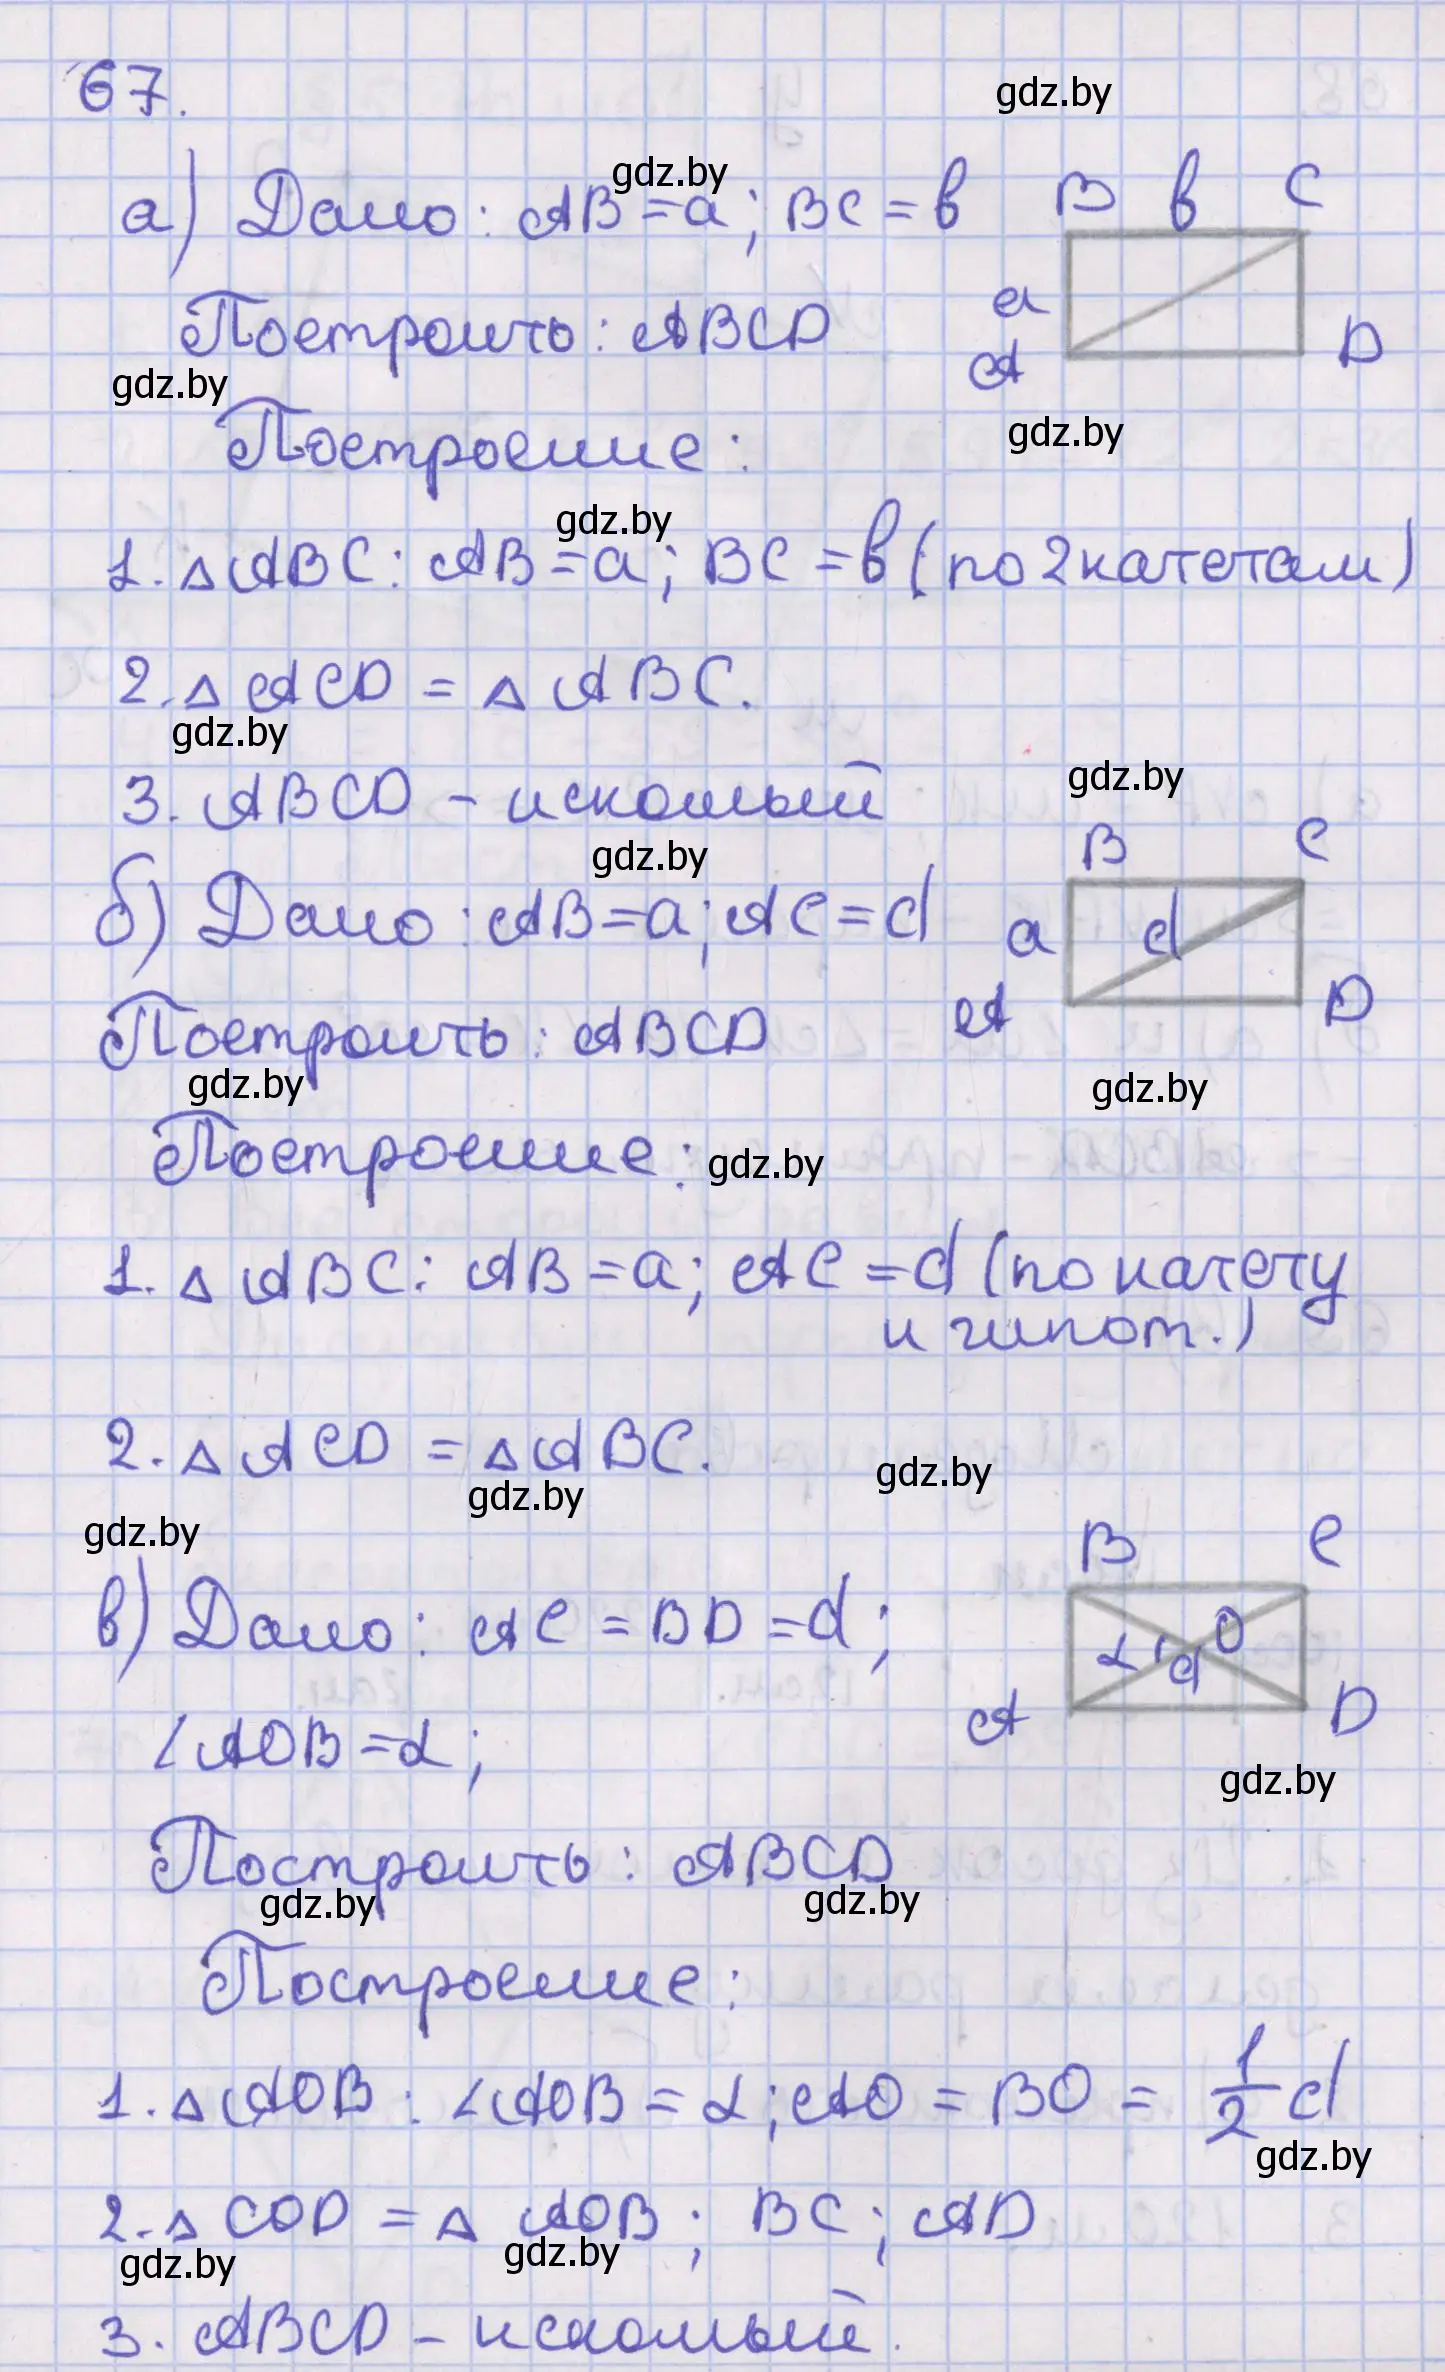 67.
gdz.by
а) Дано: AB = a; BC = b
gdz.by
B b C
a
A D
Построить: ABCD
gdz.by
gdz.by
Построение:
gdz.by
1. △ ABC: AB = a; BC = b (по 2 катетам)
2. △ ACD = △ ABC.
gdz.by
gdz.by
3. ABCD – искомый
gdz.by
B C
б) Дано: AB = a; AC = d
a d
A D
Построить: ABCD
gdz.by
gdz.by
Построение:
gdz.by
1. △ ABC: AB = a; AC = d (по катету
и гипот.)
2. △ ACD = △ ABC.
gdz.by
gdz.by
gdz.by
B C
в) Дано: AC = BD = d;
α d O
A D
∠AOB = α;
gdz.by
Построить: ABCD
gdz.by
gdz.by
Построение:
1. △ AOB: ∠AOB = α; AO = BO = 1/2 d
gdz.by
2. △ COD = △ AOB; BC; AD
gdz.by
gdz.by
3. ABCD – искомый.